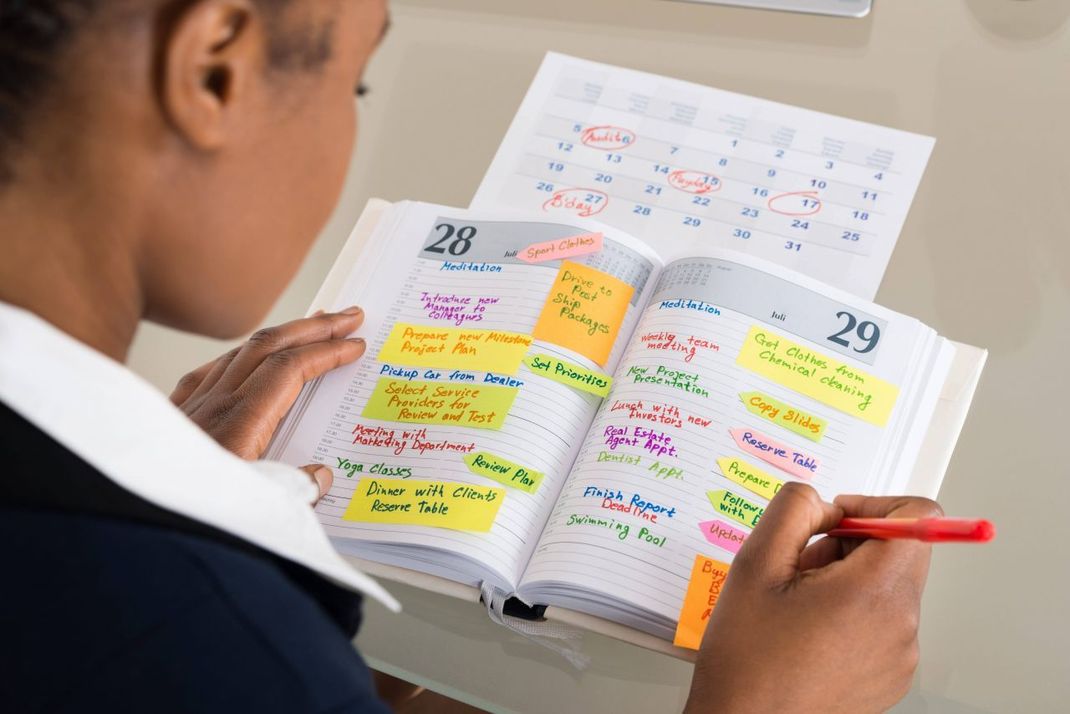 1 2 3 4
5 Audit 6 7 8 9 10 11
12 13 14 Payday 15 16 17 18
19 20 21 22 23 24 25
26 B'day 27 28 29 30 31
28
Juli
Sport Clothes
Meditation
Drive to
Post
Ship
Packages
Introduce new
Manager to
Colleagues
Prepare new Milestone
Project Plan
Set Priorities
Pickup Car from Dealer
Select Service
Providers for
Review and Test
Meeting with
Marketing Department
Review Plan
Yoga Classes
Dinner with Clients
Reserve Table
Juli
29
Meditation
Weekly team
meeting
Get Clothes from
Chemical cleaning
New Project
Presentation
Copy Slides
Lunch with new
Investors
Reserve Table
Real Estate
Agent Appt.
Dentist Appt.
Prepare
Finish Report
Deadline
Follow
with
Swimming Pool